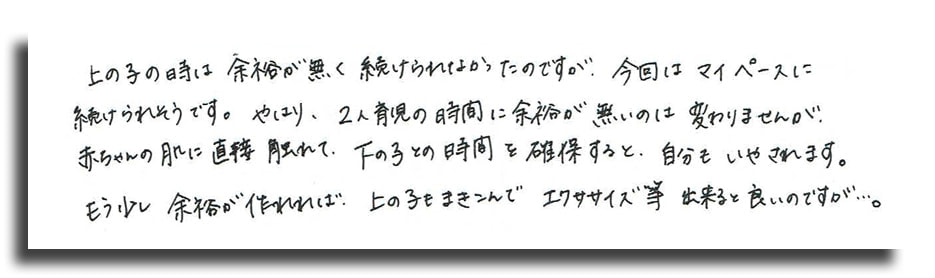 上の子の時は 余裕が無く 続けられなかったのですが、今回は マイペースに
続けられそうです。 やはり、2人育児の時間に余裕が 無いのは 変わりませんが、
赤ちゃんの肌に直接 触れて、下の子との時間を確保すると、自分も いやされます。
もう少し 余裕が作れれば、上の子もまきこんで エクササイズ等 出来ると良いのですが…。